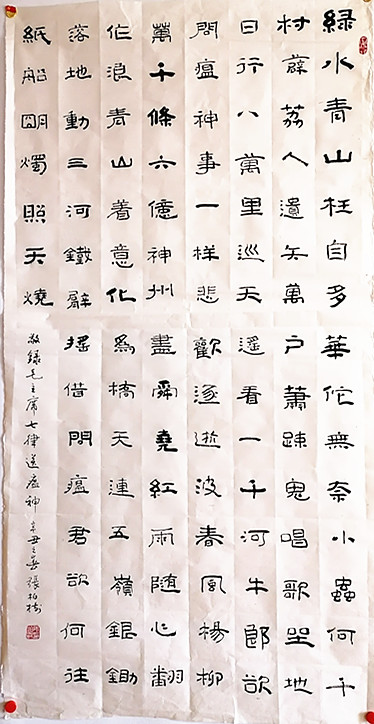 綠水青山枉自多華佗無奈小蟲何千
村薜荔人遺矢萬戶蕭疎鬼唱歌坐地
日行八萬里巡天遥看一千河牛郎欲
問瘟神事一樣悲歡逐逝波春風楊柳
萬千條六億神州盡舜堯紅雨随心翻
作浪青山着意化為橋天連五嶺銀鋤
落地動三河鐵臂摇借問瘟君欲何往
紙船明燭照天燒
敬録毛主席七律送瘟神辛丑之春張柏